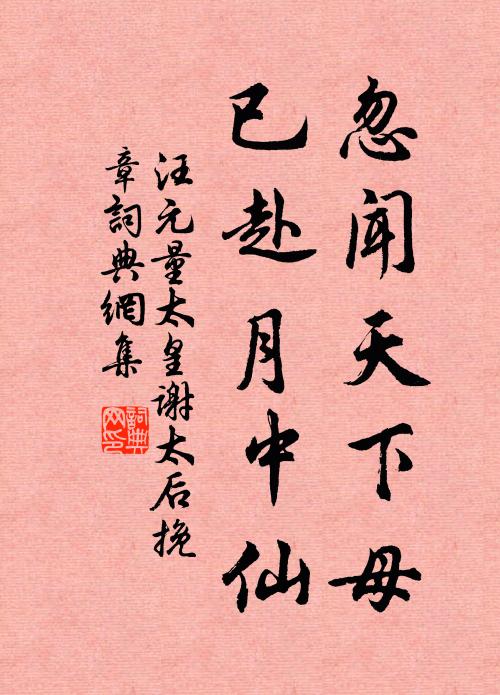 忽闻天下母
已赴月中仙
汪元量太皇谢太后挽
章詞典網集
詞典網印